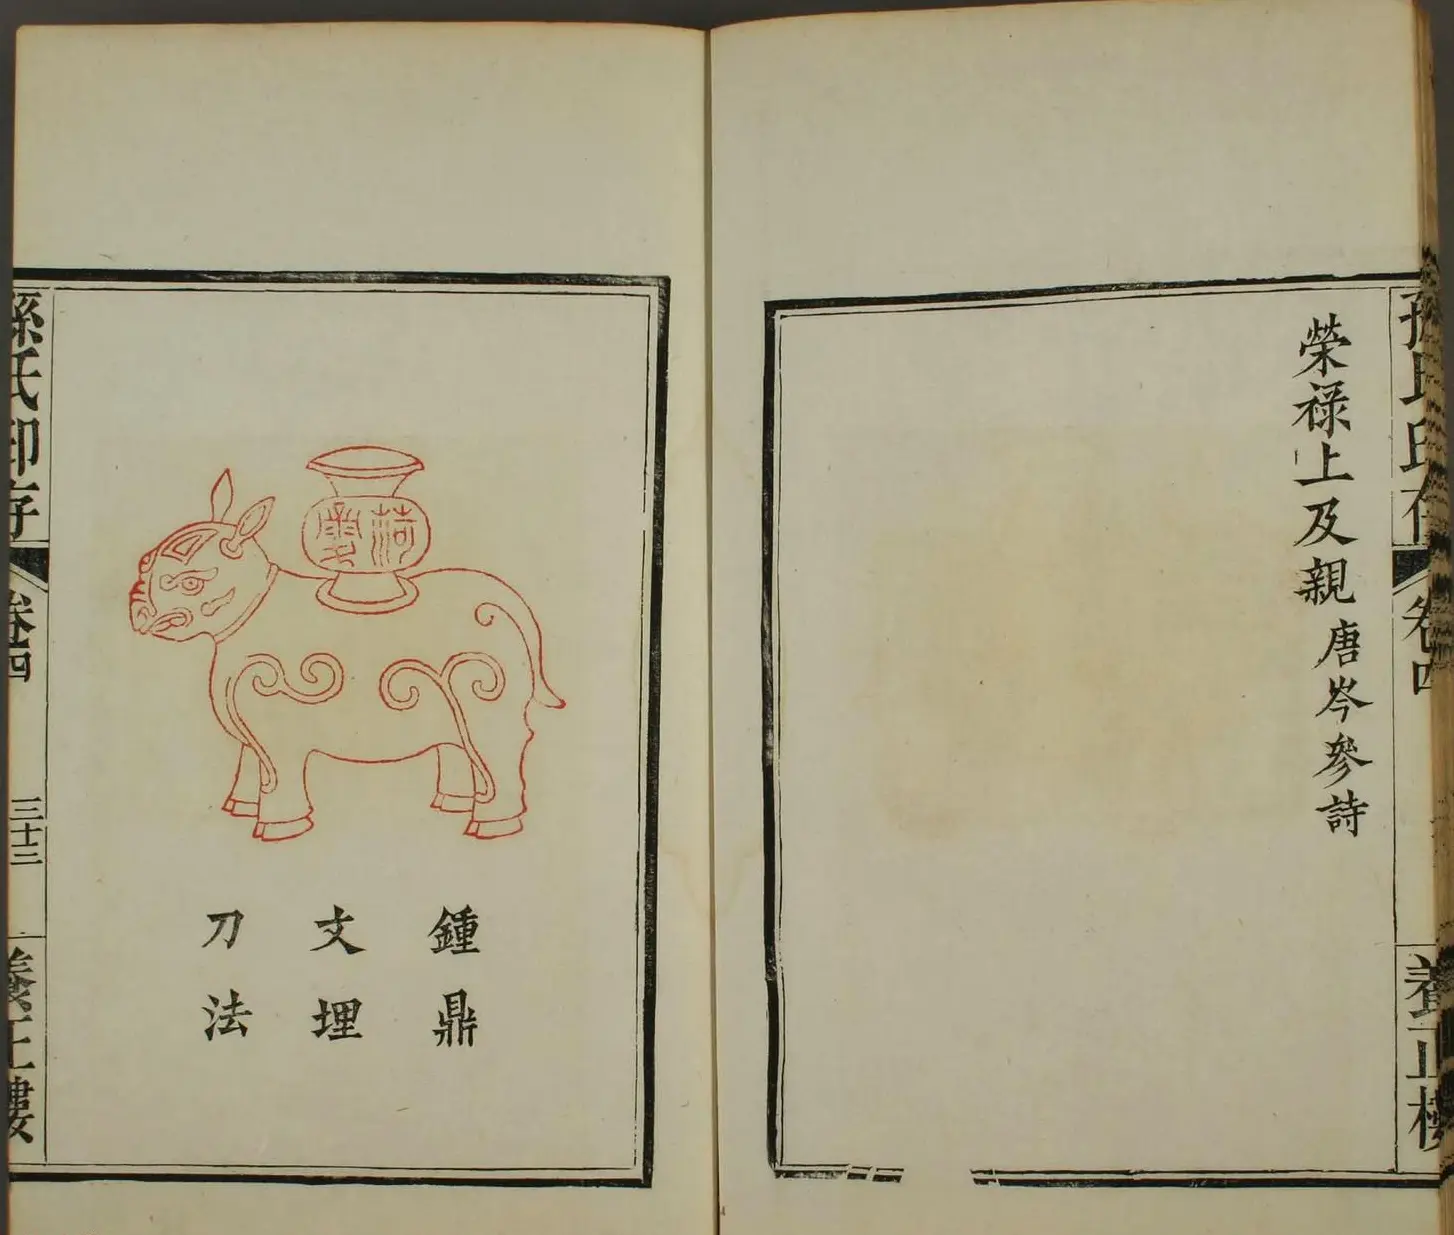 孫氏印存
卷四
養正樓
榮禄上及親唐岑參詩
荷
鍾鼎
文埋
刀法
孫氏印存
卷四
三十三
養正樓